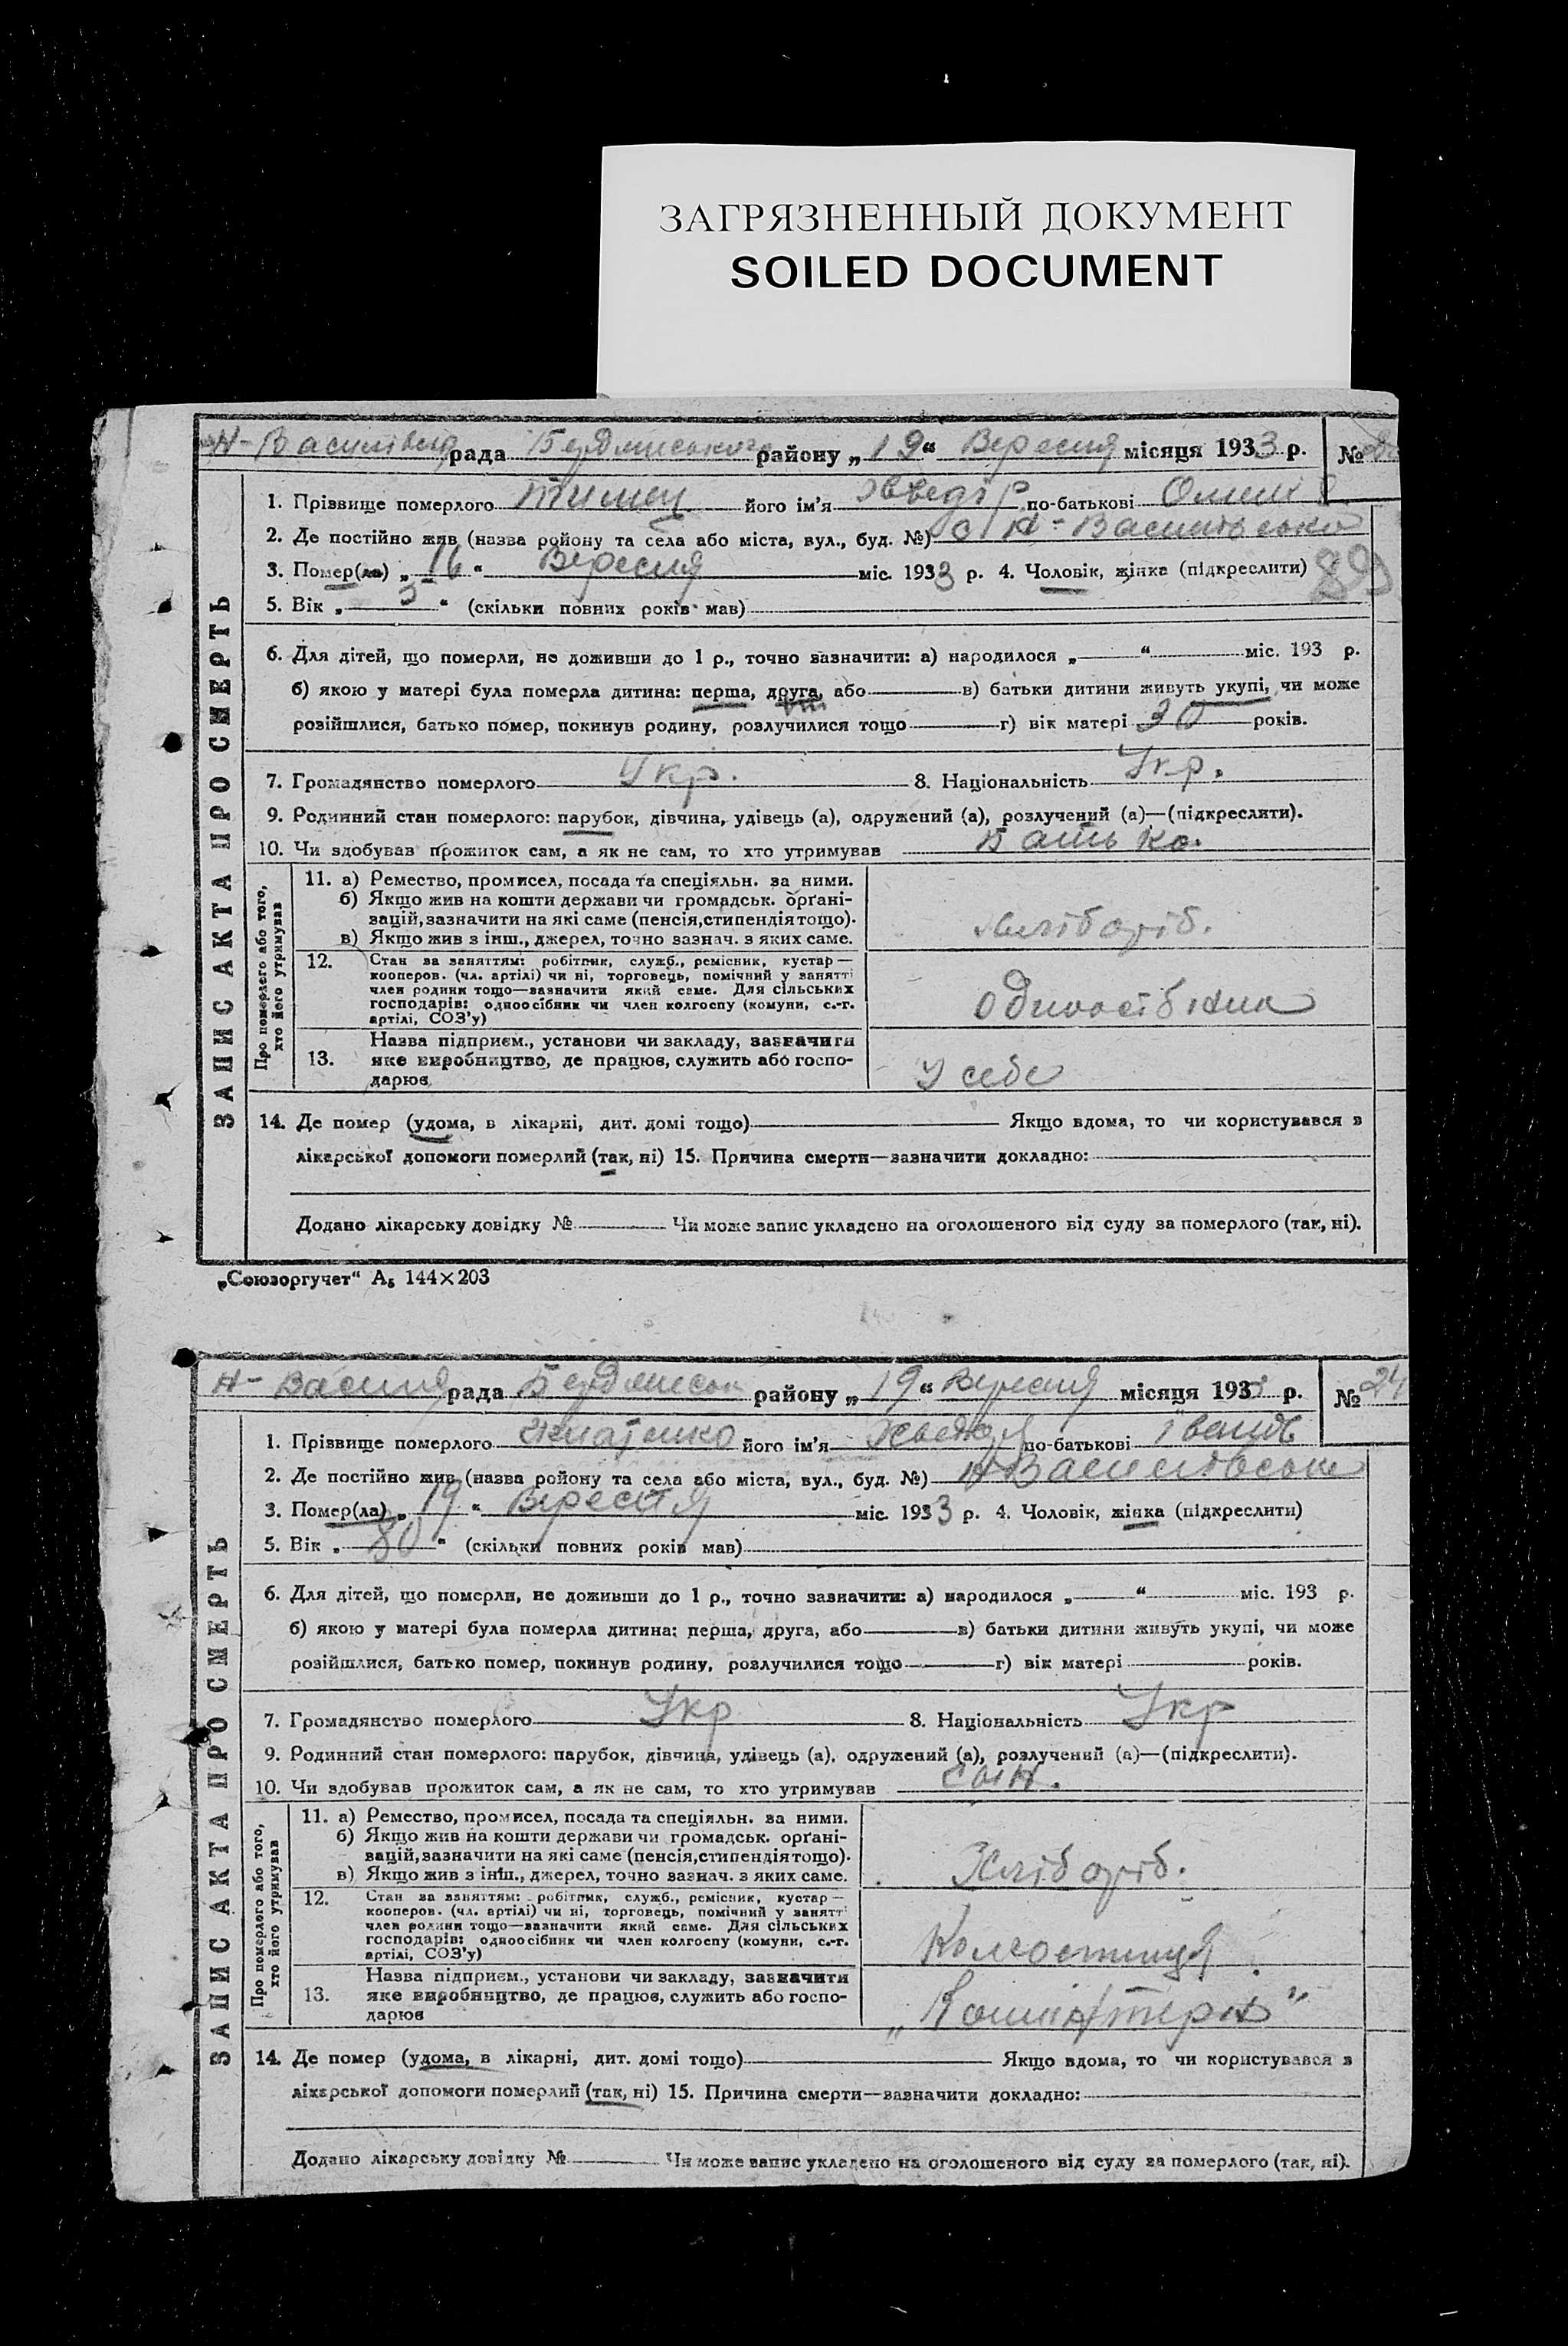 ЗАГРЯЗНЕННЫЙ ДОКУМЕНТ
SOILED DOCUMENT
рада Бердянського району „19“ Вересня місяця 1933 р. №
1. Прізвище померлого його ім'я по-батькові
2. Де постійно жив (назва району та села або міста, вул., буд. №)
3. Помер(ла) „16“ Вересня міс. 1933 р. 4. Чоловік, жінка (підкреслити) 89
5. Вік „3“ (скільки повних років мав)
6. Для дітей, що померли, не доживши до 1 р., точно зазначити: а) народилося „ “ міс. 193 р.
б) якою у матері була померла дитина: перша, друга, або в) батьки дитини живуть укупі, чи може
розійшлися, батько помер, покинув родину, розлучилися тощо г) вік матері 30 років.
7. Громадянство померлого Укр. 8. Національність Укр.
9. Родинний стан померлого: парубок, дівчина, удівець (а), одружений (а), розлучений (а)—(підкреслити).
10. Чи здобував прожиток сам, а як не сам, то хто утримував Батько.
ЗАПИС АКТА ПРО СМЕРТЬ
Про померлего або того, хто його утримував
11. а) Ремество, промисел, посада та спеціяльн. за ними.
б) Якщо жив на кошти держави чи громадськ. орґані-
зацій, зазначити на які саме (пенсія, стипендія тощо).
в) Якщо жив з інш., джерел, точно зазнач. з яких саме.
Хлібороб.
12. Стан за заняттям: робітник, служб., ремісник, кустар—
кооперов. (чл. артілі) чи ні, торговець, помічний у занятті
член родини тощо—зазначити який саме. Для сільських
господарів: одноосібник чи член колгоспу (комуни, с.-г.
артілі, СОЗ'у)
13. Назва підприєм., установи чи закладу, зазначити
яке виробництво, де працює, служить або госпо-
дарює
У себе
14. Де помер (удома, в лікарні, дит. домі тощо) Якщо вдома, то чи користувався з
лікарської допомоги померлий (так, ні) 15. Причина смерти—зазначити докладно:
Додано лікарську довідку № Чи може запис укладено на оголошеного від суду за померлого (так, ні).
„Союзоргучет“ А₅ 144×203
рада району „19“ Вересня місяця 193 р. № 24
1. Прізвище померлого його ім'я по-батькові
2. Де постійно жив (назва району та села або міста, вул., буд. №)
3. Помер(ла) „19“ Вересня міс. 1933 р. 4. Чоловік, жінка (підкреслити)
5. Вік „80“ (скільки повних років мав)
6. Для дітей, що померли, не доживши до 1 р., точно зазначити: а) народилося „ “ міс. 193 р.
б) якою у матері була померла дитина: перша, друга, або в) батьки дитини живуть укупі, чи може
розійшлися, батько помер, покинув родину, розлучилися тощо г) вік матері років.
7. Громадянство померлого Укр 8. Національність Укр
9. Родинний стан померлого: парубок, дівчина, удівець (а), одружений (а), розлучений (а)—(підкреслити).
10. Чи здобував прожиток сам, а як не сам, то хто утримував сын.
ЗАПИС АКТА ПРО СМЕРТЬ
Про померлого або того, хто його утримував
11. а) Ремество, промисел, посада та спеціяльн. за ними.
б) Якщо жив на кошти держави чи громадськ. орґані-
зацій, зазначити на які саме (пенсія, стипендія тощо).
в) Якщо жив з інш., джерел, точно зазнач. з яких саме.
Хлібороб.
12. Стан за заняттям: робітник, служб., ремісник, кустар—
кооперов. (чл. артілі) чи ні, торговець, помічний у занятті
член родини тощо—зазначити який саме. Для сільських
господарів: одноосібник чи член колгоспу (комуни, с.-г.
артілі, СОЗ'у)
13. Назва підприєм., установи чи закладу, зазначити
яке виробництво, де працює, служить або госпо-
дарює
„Комінтерн“
14. Де помер (удома, в лікарні, дит. домі тощо) Якщо вдома, то чи користувався з
лікарської допомоги померлий (так, ні) 15. Причина смерти—зазначити докладно:
Додано лікарську довідку № Чи може запис укладено на оголошеного від суду за померлого (так, ні).